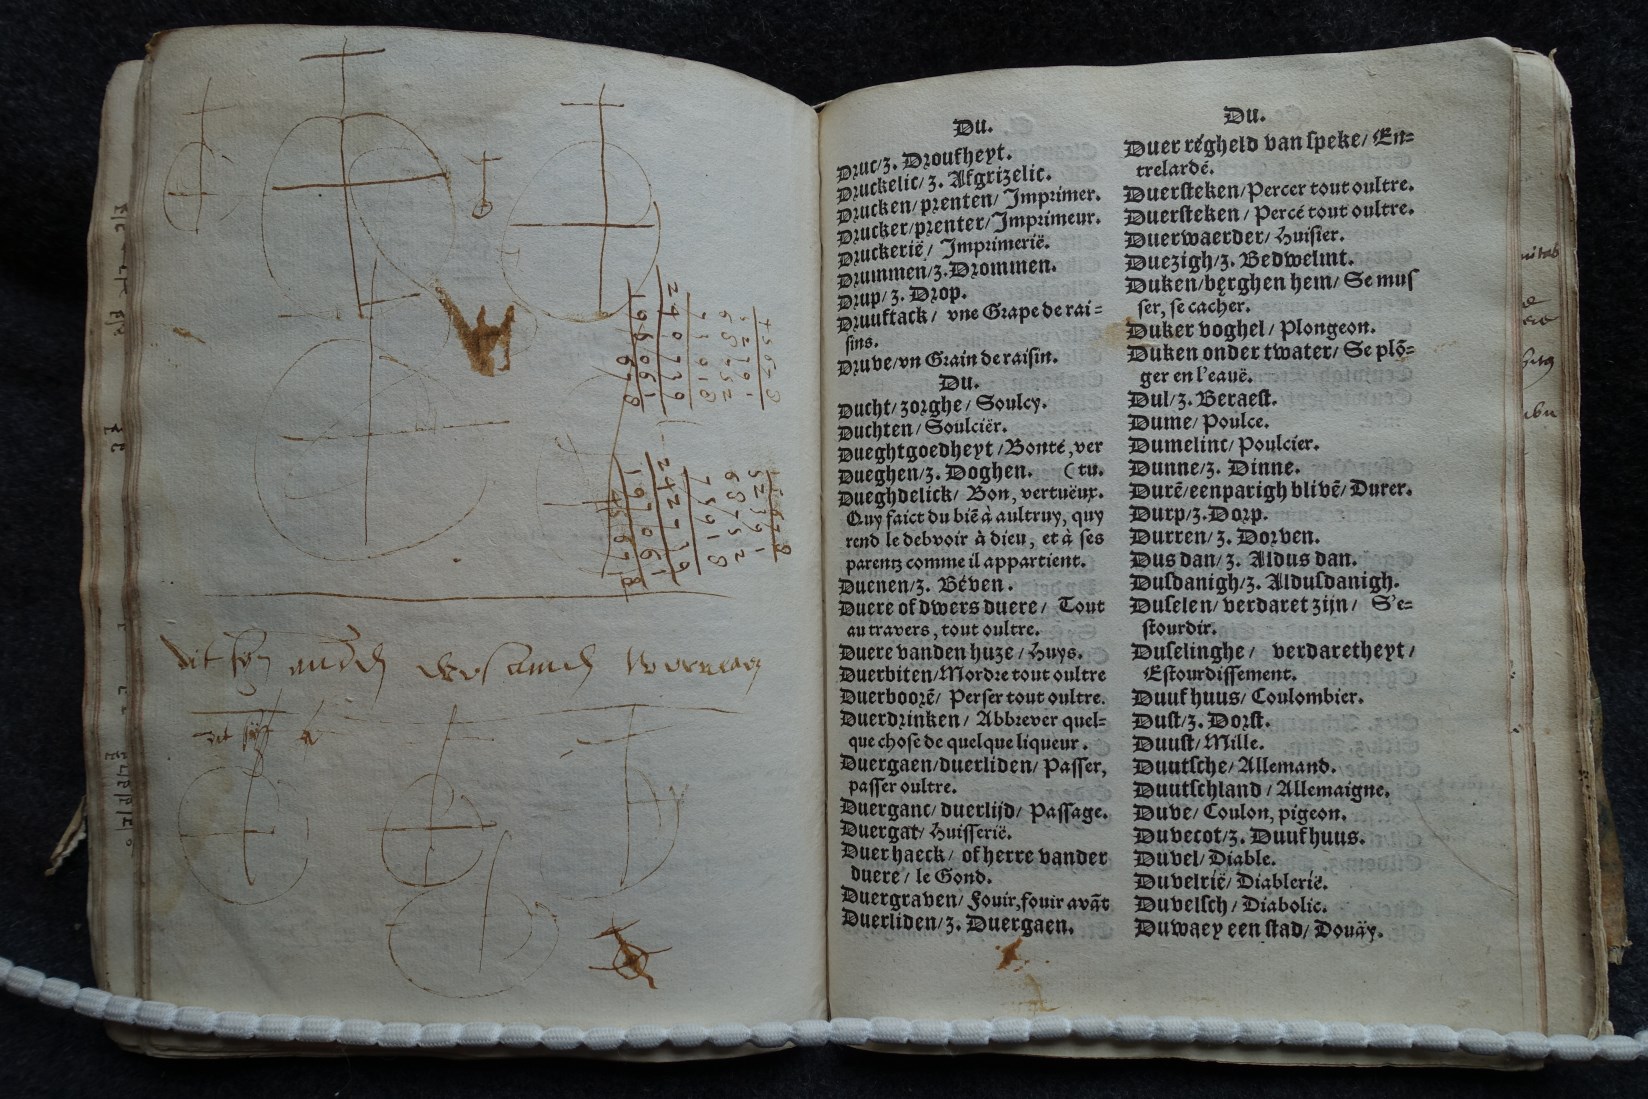 dit syn
dit
Du.
Druc/ʒ. Droufheyt.
Druckelic/ ʒ. Afgrizelic.
Drucken/prenten/ Imprimer.
Drucker/prenter/Imprimeur.
Druckerië/ Imprimerië.
Drummen/ʒ. Drommen.
Drup/ ʒ. Drop.
Druuftack/ vne Grape de rai=
sins.
Druve/vn Grain de raisin.
Du.
Ducht/zorghe/ Soulcy.
Duchten/ Soulciër.
Dueghtgoedheyt /Bonté,ver
Dueghen/ʒ. Doghen. (tu.
Dueghdelick/ Bon, vertuëux.
Quy faict du biē à aultruy, quy
rend le debvoir à dieu, et à ses
parentz comme il appartient.
Duenen/ʒ. Béven.
Duere of dwers duere/ Tout
au travers, tout oultre.
Duere vanden huze/ Huys.
Duerbiten/Mordre tout oultre
Duerboorē/ Perser tout oultre.
Duerdrinken/ Abbrever quel=
que chose de quelque liqueur.
Duergaen/duerliden/ Passer,
passer oultre.
Duerganc/ duerlijd/ Passage.
Duergat/ Huisserië.
Duer haeck/ of herre vander
duere/ le Gond.
Duergraven/ Fouir,fouir avāt
Duerliden/ʒ. Duergaen.
Du.
Duer régheld van speke/ En=
trelardé.
Duersteken/Percer tout oultre.
Duersteken/ Percé tout oultre.
Duerwaerder/ Huisier.
Duezigh/ʒ. Bedwelmt.
Duken/bęrghen hem/ Se mus
ser, se cacher.
Duker voghel/ Plongeon.
Duken onder twater/ Se plō=
ger en l'eauë.
Dul/ʒ. Beraest.
Dume/ Poulce.
Dumelinc/ Poulcier.
Dunne/ʒ. Dinne.
Durē/eenparigh blivē/ Durer.
Durp/ʒ. Dorp.
Durren/ ʒ. Dorven.
Dus dan/ ʒ. Aldus dan.
Dusdanigh/ʒ. Aldusdanigh.
Duselen/ verdaret zijn/ S'e=
stourdir.
Duselinghe/ verdaretheyt/
Estourdissement.
Duuf huus/ Coulombier.
Dust/ʒ. Dorst.
Duust/ Mille.
Duutsche/ Allemand.
Duutschland/ Allemaigne.
Duve/ Coulon, pigeon.
Duvecot/ʒ. Duuf huus.
Duvel/ Diable.
Duvelrië/ Diablerië.
Duvelsch/ Diabolic.
Duwaey een stad/ Douäy.